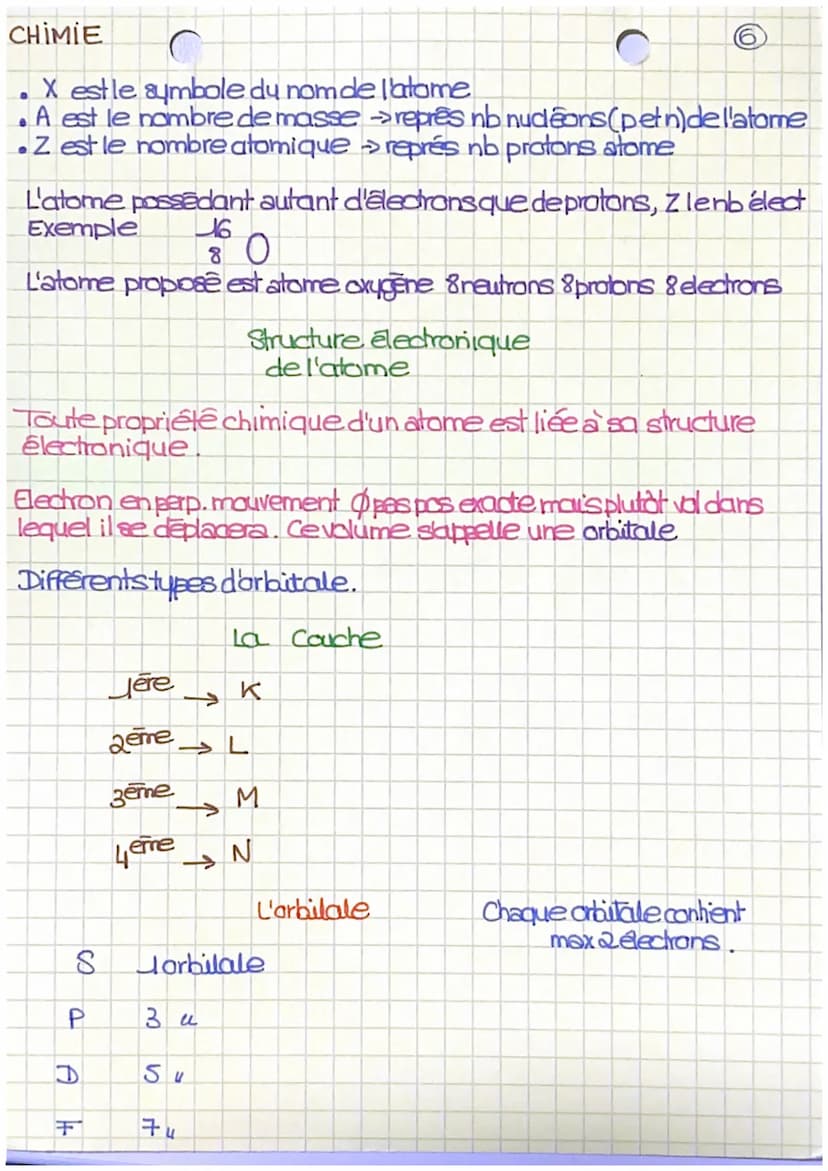 CHIMIE
6
• X est le symbole du nom de l'atome
• A est le nombre de masse → représ nb nucléons (p et n) de l'atome
• Z est le nombre atomique → représ nb protons atome
L'atome possédant autant d'électrons que de protons, Z le nb élect
Exemple 16
8 O
L'atome proposé est atome oxygène 8 neutrons 8 protons 8 electrons
Structure électronique
de l'atome
Toute propriété chimique d'un atome est liée à sa structure
électronique.
Electron en perp. mouvement Ø pas pos exacte mais plutôt vol dans
lequel il se déplacera. Ce volume s'appelle une orbitale
Différents types d'orbitale.
La Couche
1ère → K
2ème → L
3ème → M
4ème → N
L'orbitale
Chaque orbitale contient
max 2 électrons.
S 1 orbitale
P 3 "
D 5 "
F 7 "